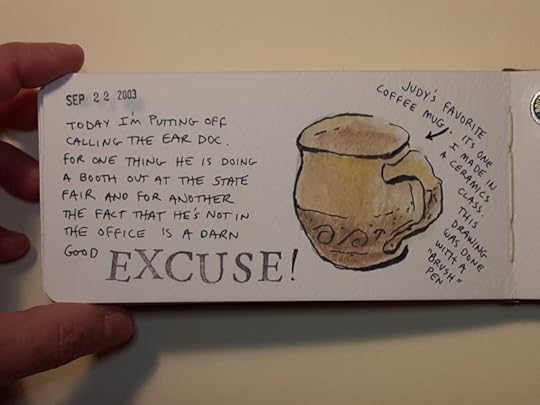 SEP 22 2003
TODAY I'M PUTTING OFF
CALLING THE EAR DOC.
FOR ONE THING HE IS DOING
A BOOTH OUT AT THE STATE
FAIR AND FOR ANOTHER
THE FACT THAT HE'S NOT IN
THE OFFICE IS A DARN
GOOD EXCUSE!
JUDY'S FAVORITE
COFFEE MUG. ITS ONE
I MADE IN
A CERAMICS
CLASS.
THIS
DRAWING
WAS DONE
WITH A
"BRUSH"
PEN